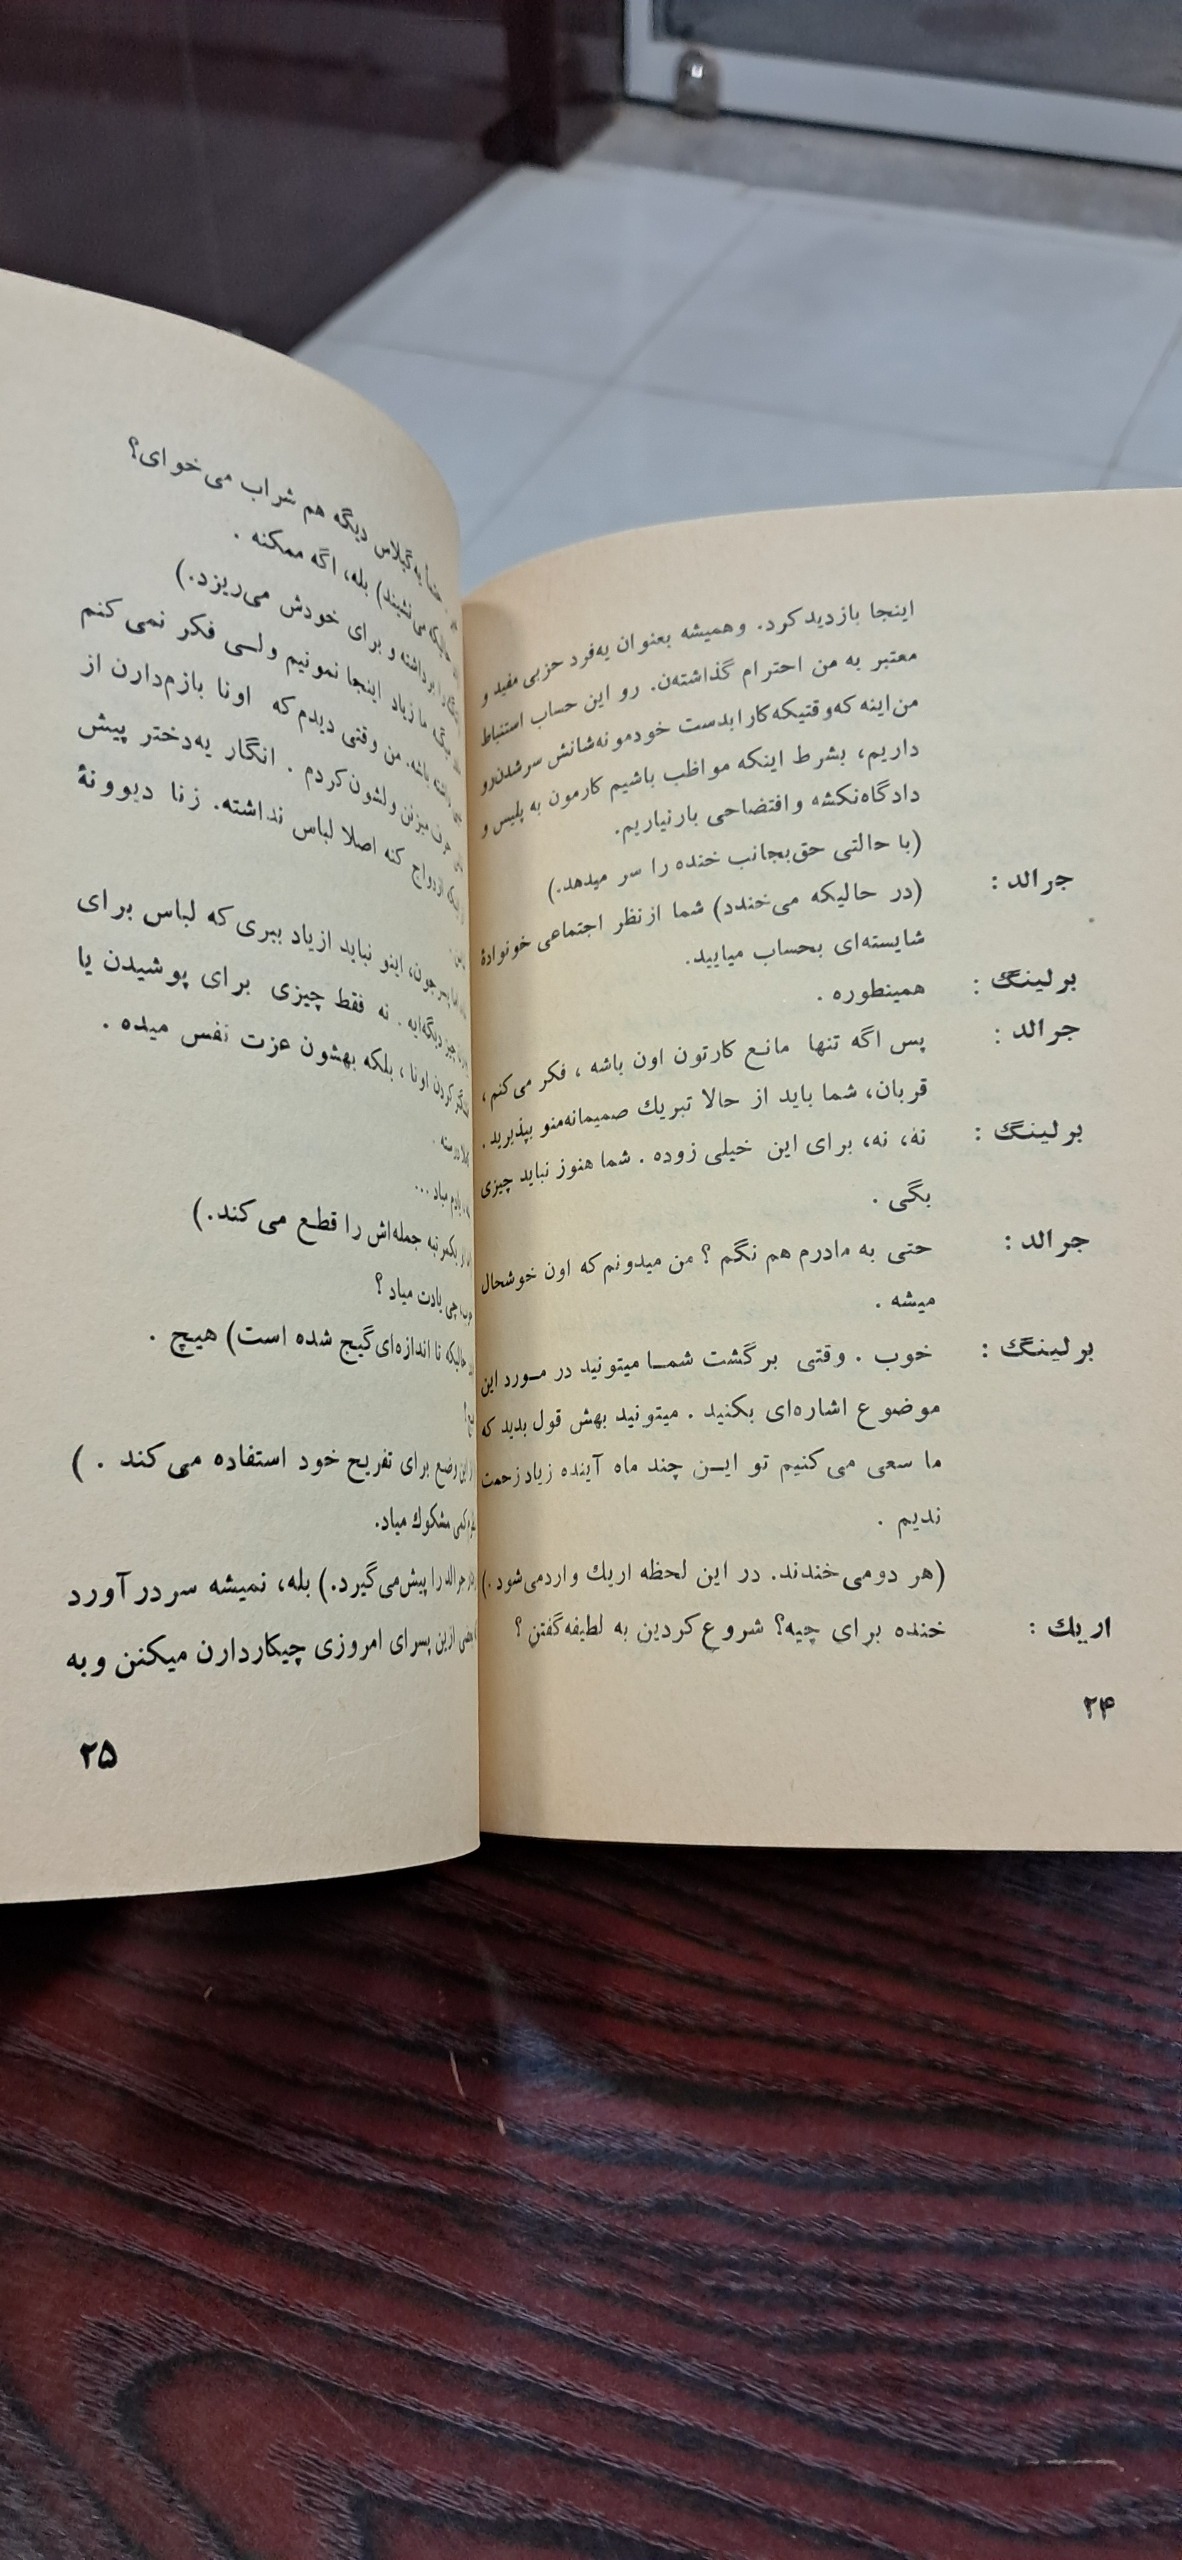 اینجا بازدید کرد. وهمیشه بعنوان یه‌فرد حزبی مفید و
معتبر به من احترام گذاشته‌ن. رو این حساب استنباط
من‌اینه که‌وقتیکه‌کارابدست خودمونه‌شانش سرشدن‌رو
داریم، بشرط اینکه مواظب باشیم کارمون به پلیس و
دادگاه‌نکشه وافتضاحی بارنیاریم.
جرالد : (با حالتی حق‌بجانب خنده را سر میدهد.)
(در حالیکه می‌خندد) شما ازنظر اجتماعی خونوادهٔ
شایسته‌ای بحساب میایید.
برلینگ : همینطوره .
جرالد : پس اگه تنها مانع کارتون اون باشه ، فکر می‌کنم ،
قربان، شما باید از حالا تبریك صمیمانه‌منو بپذیرید .
برلینگ : نهٔ، نه، برای این خیلی زوده . شما هنوز نباید چیزی
بگی .
جرالد : حتی به مادرم هم نگم ؟ من میدونم‌که اون خوشحال
میشه .
برلینگ : خوب . وقتی برگشت شما میتونید در مورد این
موضوع اشاره‌ای بکنید . میتونید بهش قول بدید که
ما سعی می‌کنیم تو این چند ماه آینده زیاد زحمت
ندیم .
(هر دومی‌خندند. در این لحظه اریك واردمی‌شود .)
اریك : خنده برای چیه؟ شروع‌کردین به لطیفه‌گفتن ؟
۲۴
یه‌گیلاس دیگه هم شراب می‌خوای؟
می‌نشیند) بله، اگه ممکنه .
برداشته و برای خودش می‌ریزد.)
ما زیاد اینجا نمونیم ولی فکر نمی‌کنم
باشه. من وقتی دیدم‌که اونا بازم‌دارن از
میزنن ولشون‌کردم . انگار یه‌دختر پیش
ازدواج کنه اصلا لباس نداشته. زنا دیوونهٔ
پسرجون، اینو نباید ازیاد ببری‌که لباس برای
چیز دیگه‌ایه . نه فقط چیزی برای پوشیدن یا
کردن اونا ، بلکه بهشون عزت نفس میده .
یادم میاد ...
یکمرتبه جمله‌اش را قطع می‌کند.)
چی یادت میاد ؟
حالیکه تا اندازه‌ای‌گیج شده است) هیچ .
این وضع برای تفریح خود استفاده می‌کند . )
کمی مشکوك میاد.
جرالد را پیش‌می‌گیرد.) بله، نمیشه سردرآورد
ازین پسرای امروزی چیکاردارن میکنن وبه
۲۵